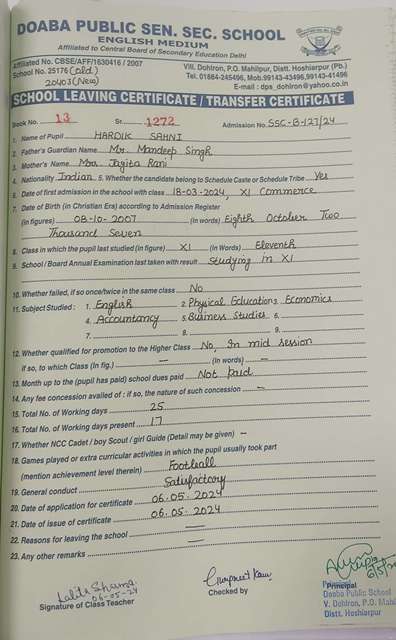 DOABA PUBLIC SEN. SEC. SCHOOL
ENGLISH MEDIUM
Affiliated to Central Board of Secondary Education Delhi
Affiliated No. CBSE/AFF/1630416 / 2007
School No. 25176 (Old)
20403 (New)
Vill. Dohlron, P.O. Mahilpur, Distt. Hoshiarpur (Pb.)
Tel. 01884-245496, Mob.99143-43496,99143-41496
E-mail : dps_dohlron@yahoo.co.in
SCHOOL LEAVING CERTIFICATE / TRANSFER CERTIFICATE
Book No. 13 Sr. 1272 Admission No. SSC-B-127/24
1. Name of Pupil HARDIK SAHNI
2. Father's Guardian Name Mr. Mandeep Singh
3. Mother's Name Mrs. Jagita Rani
4. Nationality Indian 5. Whether the candidate belong to Schedule Caste or Schedule Tribe Yes
6. Date of first admission in the school with class 18-03-2024, XI Commerce
7. Date of Birth (in Christian Era) according to Admission Register
(in figures) 08-10-2007 (in words) Eighth October Two
Thousand Seven
8. Class in which the pupil last studied (in figure) XI (in Words) Eleventh
9. School / Board Annual Examination last taken with result Studying in XI
10. Whether failed, if so once/twice in the same class No
11. Subject Studied : 1. English 2. Physical Education 3. Economics
4. Accountancy 5. Business Studies 6.
7. 8. 9.
12. Whether qualified for promotion to the Higher Class No, In mid session
if so, to which Class (in fig.) – (in words) –
13. Month up to the (pupil has paid) school dues paid Not paid
14. Any fee concession availed of : if so, the nature of such concession –
15. Total No. of Working days 25
16. Total No. of Working days present 17
17. Whether NCC Cadet / boy Scout / girl Guide (Detail may be given) –
18. Games played or extra curricular activities in which the pupil usually took part
(mention achievement level therein) Football
19. General conduct Satisfactory
20. Date of application for certificate 06.05.2024
21. Date of issue of certificate 06.05.2024
22. Reasons for leaving the school –
23. Any other remarks –
Lalita Sharma
06-05-24
Signature of Class Teacher
Checked by
6/5/24
Principal
Principal
Doaba Public School
V. Dohlron, P.O. Mahil
Distt. Hoshiarpur